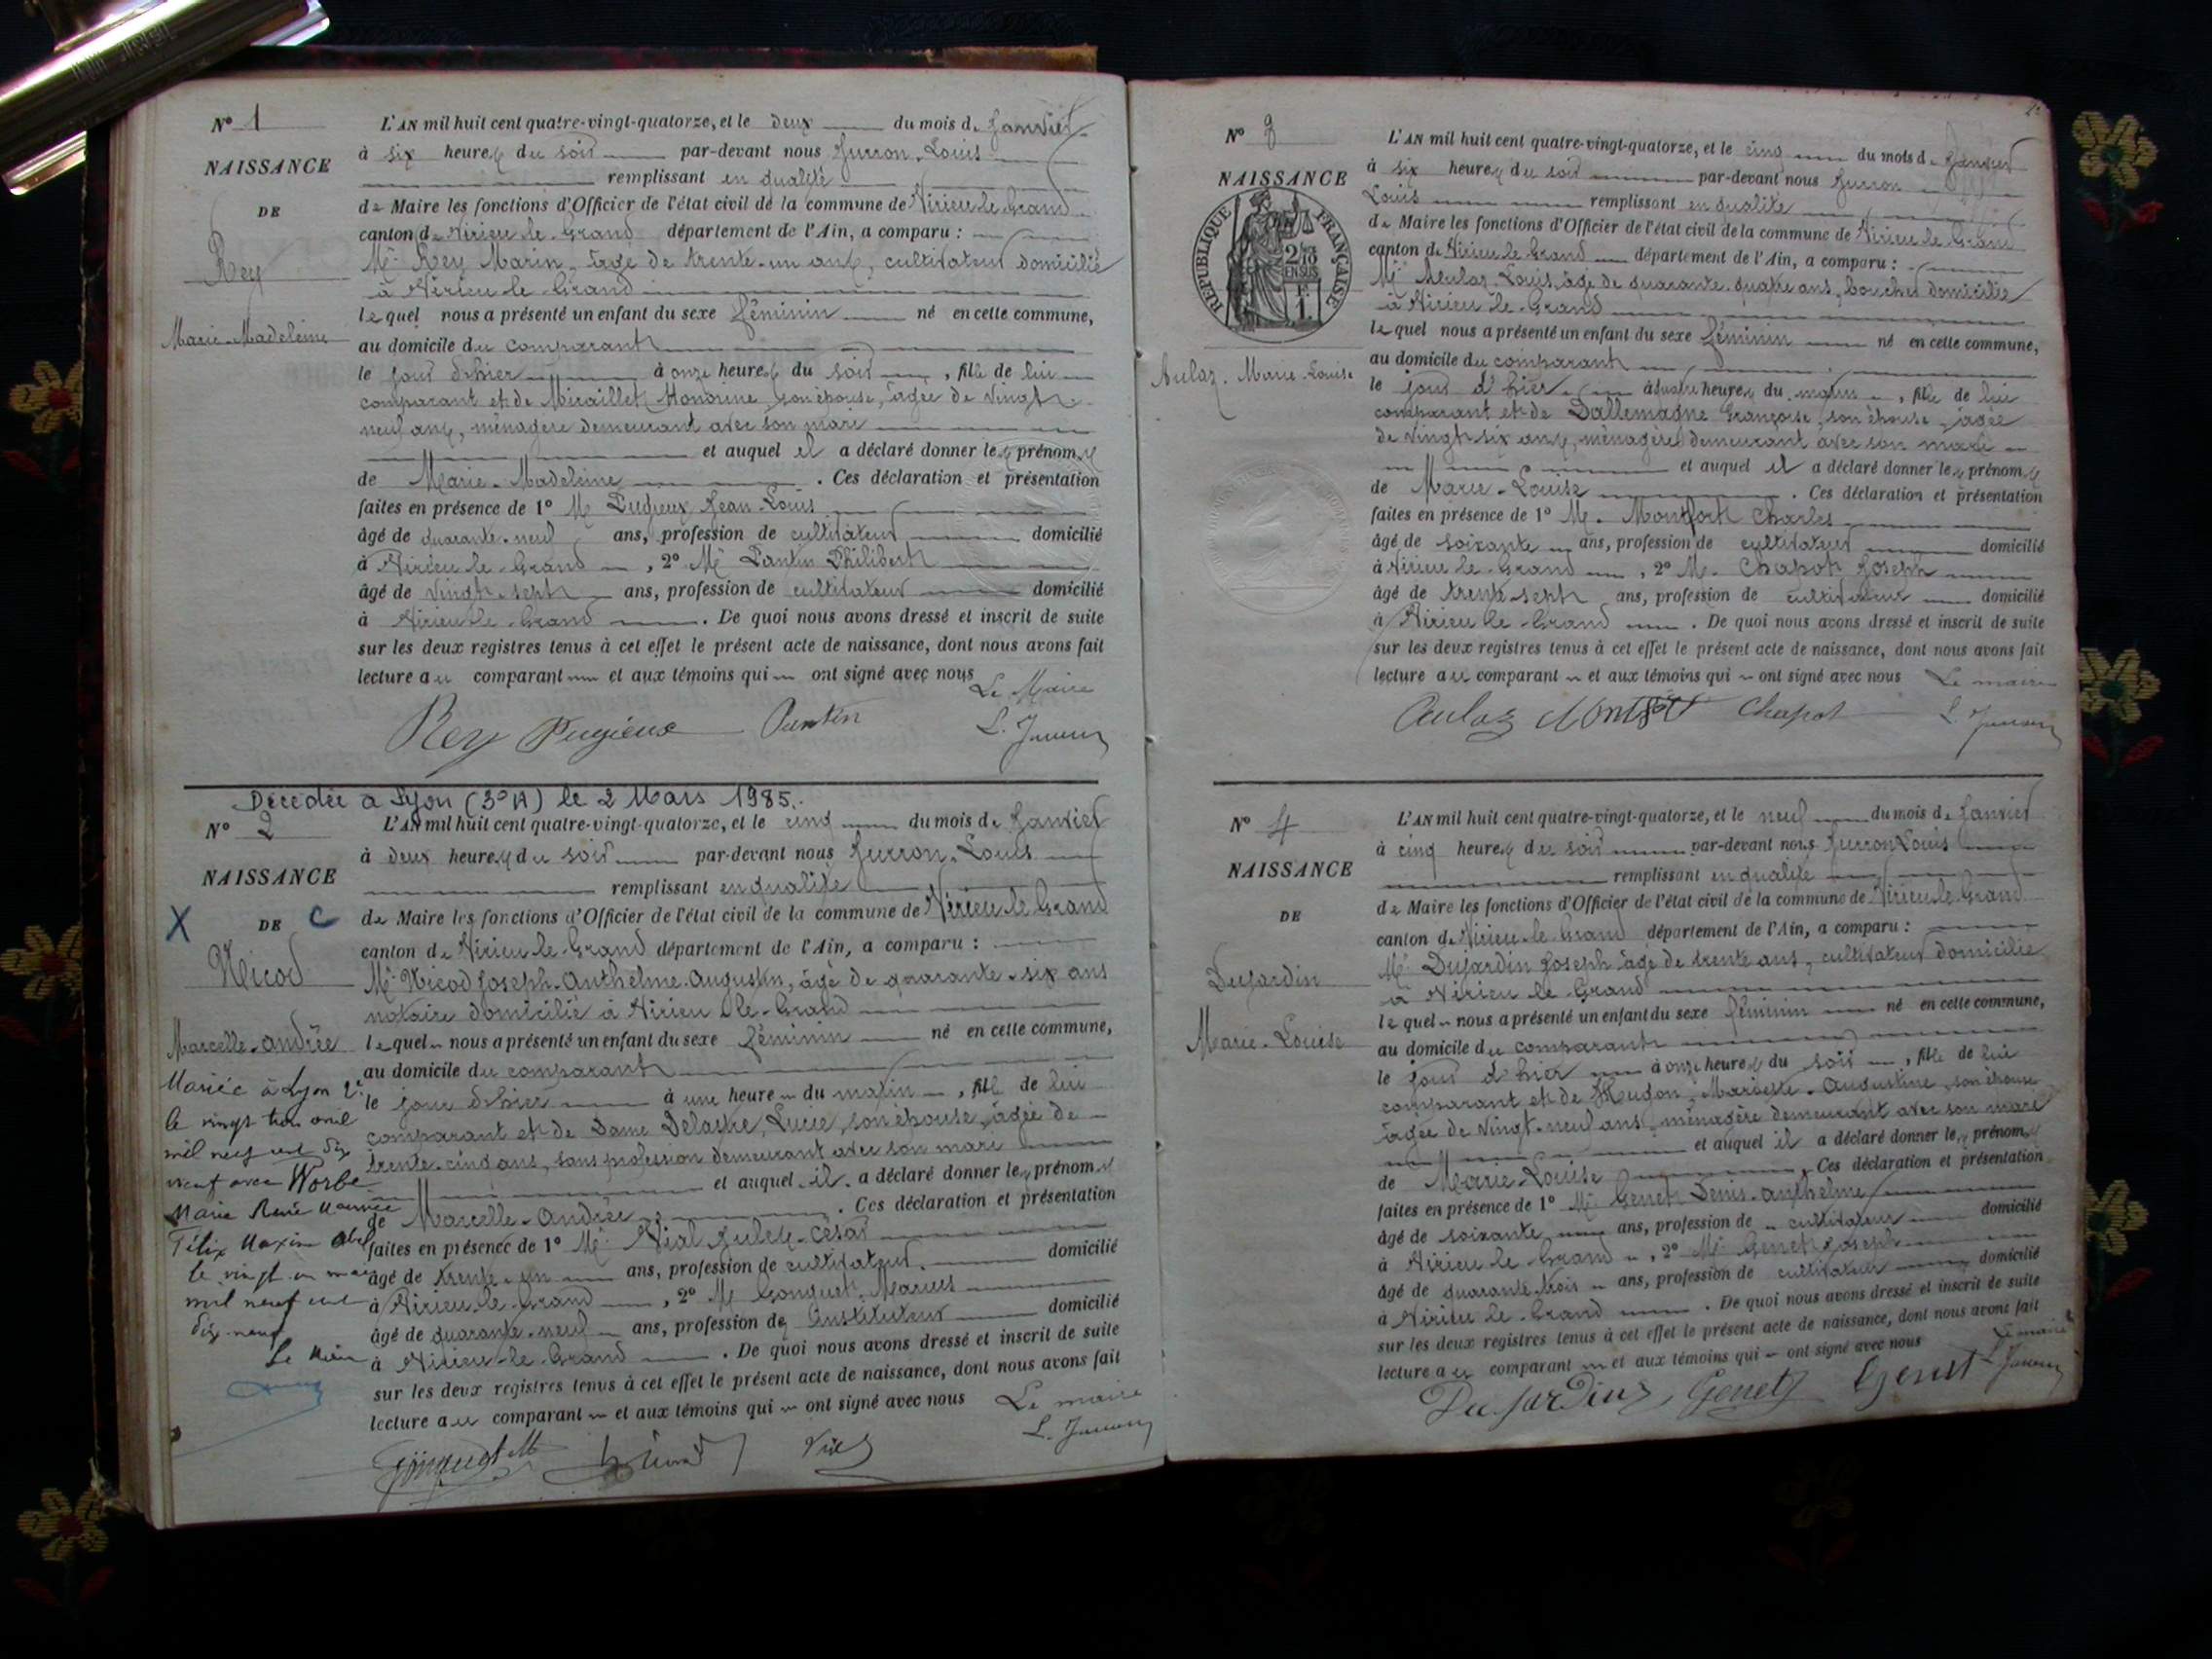 N° 1
NAISSANCE
DE
Rey
Marie-Madeleine
L'AN mil huit cent quatre-vingt-quatorze, et le deux du mois de Janvier
à six heures du soir par-devant nous Juron Louis
remplissant en qualité
de Maire les fonctions d'Officier de l'état civil de la commune de Virieu-le-Grand
canton de Virieu-le-Grand département de l'Ain, a comparu :
Mr Rey Marin, âgé de trente-un ans, cultivateur domicilié
à Virieu-le-Grand
lequel nous a présenté un enfant du sexe féminin né en cette commune,
au domicile du comparant
le jour d'hier à onze heures du soir, fille de lui
comparant et de Miraillet Honorine, son épouse, âgée de vingt
neuf ans, ménagère demeurant avec son mari
et auquel il a déclaré donner les prénoms
de Marie-Madeleine. Ces déclaration et présentation
faites en présence de 1° Mr Pugieux Jean-Louis
âgé de quarante-neuf ans, profession de cultivateur domicilié
à Virieu-le-Grand, 2° Mr Pantin Philibert
âgé de vingt-sept ans, profession de cultivateur domicilié
à Virieu-le-Grand. De quoi nous avons dressé et inscrit de suite
sur les deux registres tenus à cet effet le présent acte de naissance, dont nous avons fait
lecture au comparant et aux témoins qui ont signé avec nous
Le Maire
Rey Pugieux Pantin L. Juron
Décédée à Lyon (3°A) le 2 Mars 1985.
N° 2
NAISSANCE
X DE C
Nicod
Marcelle-Andrée
Mariée à Lyon 2e
le vingt trois avril
mil neuf cent dix
neuf avec Worbe
Marie René Maurice
Félix Maxime Abel
le vingt un mai
mil neuf cent
dix-neuf
Le Maire
L'AN mil huit cent quatre-vingt-quatorze, et le cinq du mois de Janvier
à deux heures du soir par-devant nous Juron Louis
remplissant en qualité
de Maire les fonctions d'Officier de l'état civil de la commune de Virieu-le-Grand
canton de Virieu-le-Grand département de l'Ain, a comparu :
Mr Nicod Joseph-Anthelme-Augustin, âgé de quarante-six ans
notaire domicilié à Virieu-le-Grand
lequel nous a présenté un enfant du sexe féminin né en cette commune,
au domicile du comparant
le jour d'hier à une heure du matin, fille de lui
comparant et de Dame Delastre, Lucie, son épouse, âgée de
trente-cinq ans, sans profession demeurant avec son mari
et auquel il a déclaré donner les prénoms
de Marcelle-Andrée. Ces déclaration et présentation
faites en présence de 1° Mr Vial Jules-César
âgé de trente-un ans, profession de cultivateur domicilié
à Virieu-le-Grand, 2° Mr Gonguet, Marius
âgé de quarante-neuf ans, profession de Instituteur domicilié
à Virieu-le-Grand. De quoi nous avons dressé et inscrit de suite
sur les deux registres tenus à cet effet le présent acte de naissance, dont nous avons fait
lecture au comparant et aux témoins qui ont signé avec nous
Le maire
Gonguet M Vial L. Juron
N° 3
NAISSANCE
RÉPUBLIQUE FRANÇAISE
2/10 EN SUS
1 F.
Aulaz Marie-Louise
L'AN mil huit cent quatre-vingt-quatorze, et le cinq du mois de Janvier
à six heures du soir par-devant nous Juron
Louis remplissant en qualité
de Maire les fonctions d'Officier de l'état civil de la commune de Virieu-le-Grand
canton de Virieu-le-Grand département de l'Ain, a comparu :
Mr Aulaz Louis, âgé de quarante-quatre ans, boucher domicilié
à Virieu-le-Grand
lequel nous a présenté un enfant du sexe féminin né en cette commune,
au domicile du comparant
le jour d'hier à quatre heures du matin, fille de lui
comparant et de Dallemagne Françoise, son épouse, âgée
de vingt-six ans, ménagère demeurant avec son mari
et auquel il a déclaré donner les prénoms
de Marie-Louise. Ces déclaration et présentation
faites en présence de 1° M. Montfort Charles
âgé de soixante ans, profession de cultivateur domicilié
à Virieu le-Grand, 2° M. Chapot Joseph
âgé de trente-sept ans, profession de cultivateur domicilié
à Virieu le-Grand. De quoi nous avons dressé et inscrit de suite
sur les deux registres tenus à cet effet le présent acte de naissance, dont nous avons fait
lecture au comparant et aux témoins qui ont signé avec nous Le maire
Aulaz Montfort Chapot L. Juron
N° 4
NAISSANCE
DE
Dujardin
Marie-Louise
L'AN mil huit cent quatre-vingt-quatorze, et le neuf du mois de Janvier
à cinq heures du soir par-devant nous Juron Louis
remplissant en qualité
de Maire les fonctions d'Officier de l'état civil de la commune de Virieu-le-Grand
canton de Virieu-le-Grand département de l'Ain, a comparu :
Mr Dujardin Joseph âgé de trente ans, cultivateur domicilié
à Virieu-le-Grand
lequel nous a présenté un enfant du sexe féminin né en cette commune,
au domicile du comparant
le jour d'hier à onze heures du soir, fille de lui
comparant et de Hugon, Marcelle-Augustine, son épouse
âgée de vingt-neuf ans, ménagère demeurant avec son mari
et auquel il a déclaré donner les prénoms
de Marie-Louise. Ces déclaration et présentation
faites en présence de 1° Mr Genet Denis-Anthelme
âgé de soixante ans, profession de cultivateur domicilié
à Virieu le-Grand, 2° Mr Genet Joseph
âgé de quarante-trois ans, profession de cultivateur domicilié
à Virieu le-Grand. De quoi nous avons dressé et inscrit de suite
sur les deux registres tenus à cet effet le présent acte de naissance, dont nous avons fait
lecture au comparant et aux témoins qui ont signé avec nous Le maire
Dujardin Genet Genet L. Juron